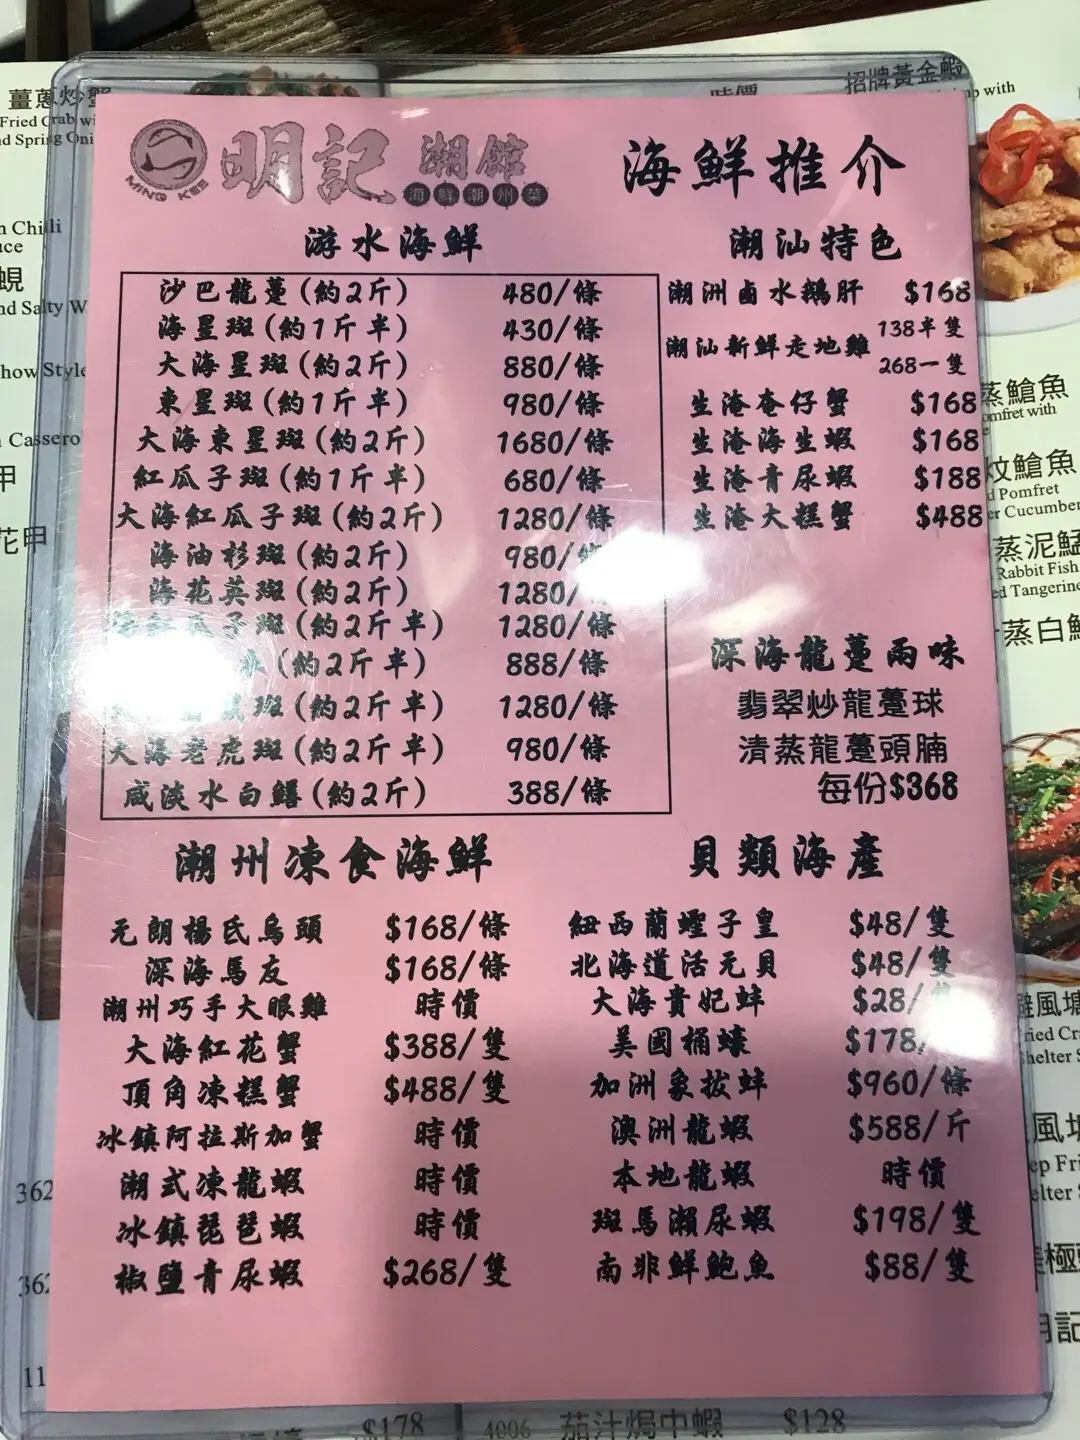 明記 潮館
MING KEE
海鮮潮州菜
海鮮推介
游水海鮮
沙巴龍躉(約2斤) 480/條
海星斑(約1斤半) 430/條
大海星斑(約2斤) 880/條
東星斑(約1斤半) 980/條
大海東星斑(約2斤) 1680/條
紅瓜子斑(約1斤半) 680/條
大海紅瓜子斑(約2斤) 1280/條
海油杉斑(約2斤) 980/
海花英斑(約2斤) 1280/
子斑(約2斤半) 1280/條
(約2斤半) 888/條
斑(約2斤半) 1280/條
大海老虎斑(約2斤半) 980/條
咸淡水白鱔(約2斤) 388/條
潮汕特色
潮洲鹵水鵝肝 $168
潮汕新鮮走地雞 138半隻
268一隻
生淹奄仔蟹 $168
生淹海生蝦 $168
生淹青尿蝦 $188
生淹大糕蟹 $488
深海龍躉兩味
翡翠炒龍躉球
清蒸龍躉頭腩
每份$368
潮州凍食海鮮
元朗楊氏烏頭 $168/條
深海馬友 $168/條
潮州巧手大眼雞 時價
大海紅花蟹 $388/隻
頂角凍糕蟹 $488/隻
冰鎮阿拉斯加蟹 時價
潮式凍龍蝦 時價
冰鎮琵琶蝦 時價
椒鹽青尿蝦 $268/隻
貝類海產
紐西蘭蟶子皇 $48/隻
北海道活元貝 $48/隻
大海貴妃蚌 $28/
美國桶蠔 $178/
加洲象拔蚌 $960/條
澳洲龍蝦 $588/斤
本地龍蝦 時價
斑馬瀨尿蝦 $198/隻
南非鮮鮑魚 $88/隻
薑蔥炒蟹
Fried Crab
Spring
Chilli
蜆
Salty
Style
甲
花甲
362
362
11
時價
招牌黃金蝦
with
蒸鱠魚
with
鱠魚
Pomfret
Cucumber
蒸泥鯭
Rabbit Fish
Tangerine
蒸白
避風塘
風塘
$178
4006 茄汁焗中蝦 $128